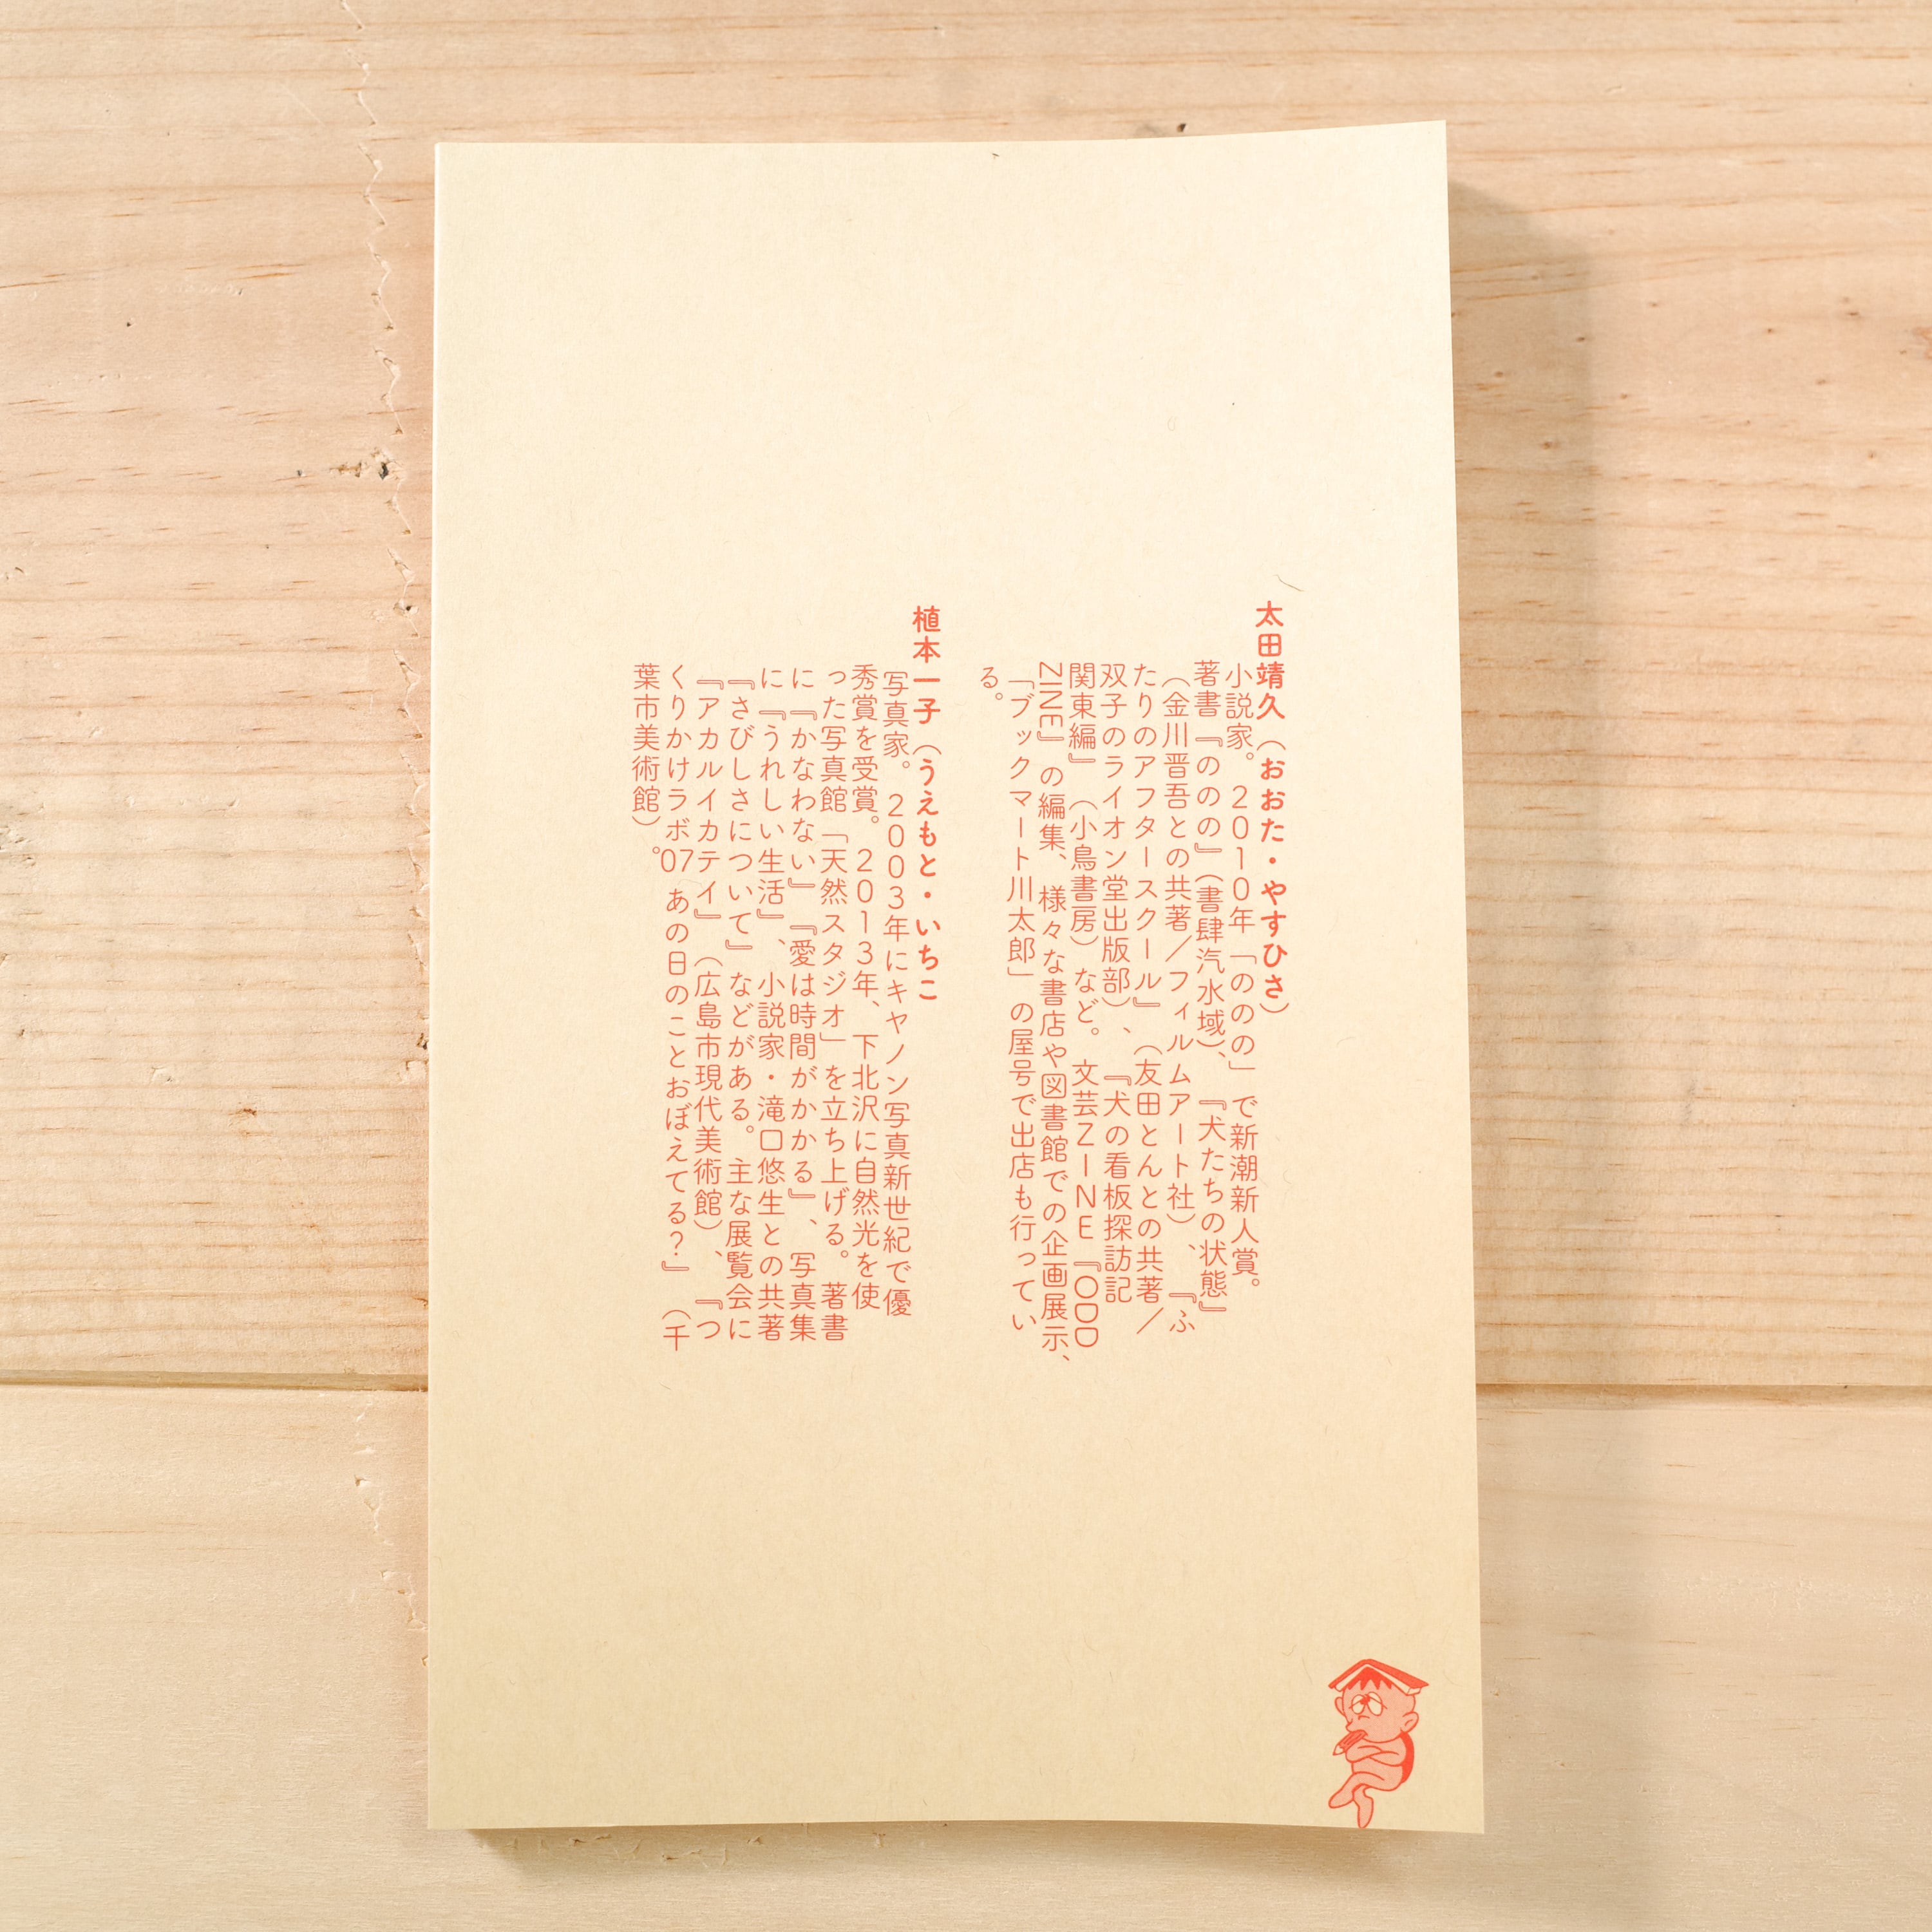 太田靖久（おおた・やすひさ）
小説家。2010年「ののの」で新潮新人賞。
著書『ののの』（書肆汽水域）、『犬たちの状態』
（金川晋吾との共著／フィルムアート社）、『ふ
たりのアフタースクール』（友田とんとの共著／
双子のライオン堂出版部）、『犬の看板探訪記
関東編』（小鳥書房）など。文芸ZINE『ODD
ZINE』の編集、様々な書店や図書館での企画展示、
「ブックマート川太郎」の屋号で出店も行ってい
る。
植本一子（うえもと・いちこ
写真家。2003年にキヤノン写真新世紀で優
秀賞を受賞。2013年、下北沢に自然光を使
った写真館「天然スタジオ」を立ち上げる。著書
に『かなわない』『愛は時間がかかる』、写真集
に『うれしい生活』、小説家・滝口悠生との共著
『さびしさについて』などがある。主な展覧会に
『アカルイカテイ』（広島市現代美術館）、『つ
くりかけラボ07 あの日のことおぼえてる？』（千
葉市美術館）。